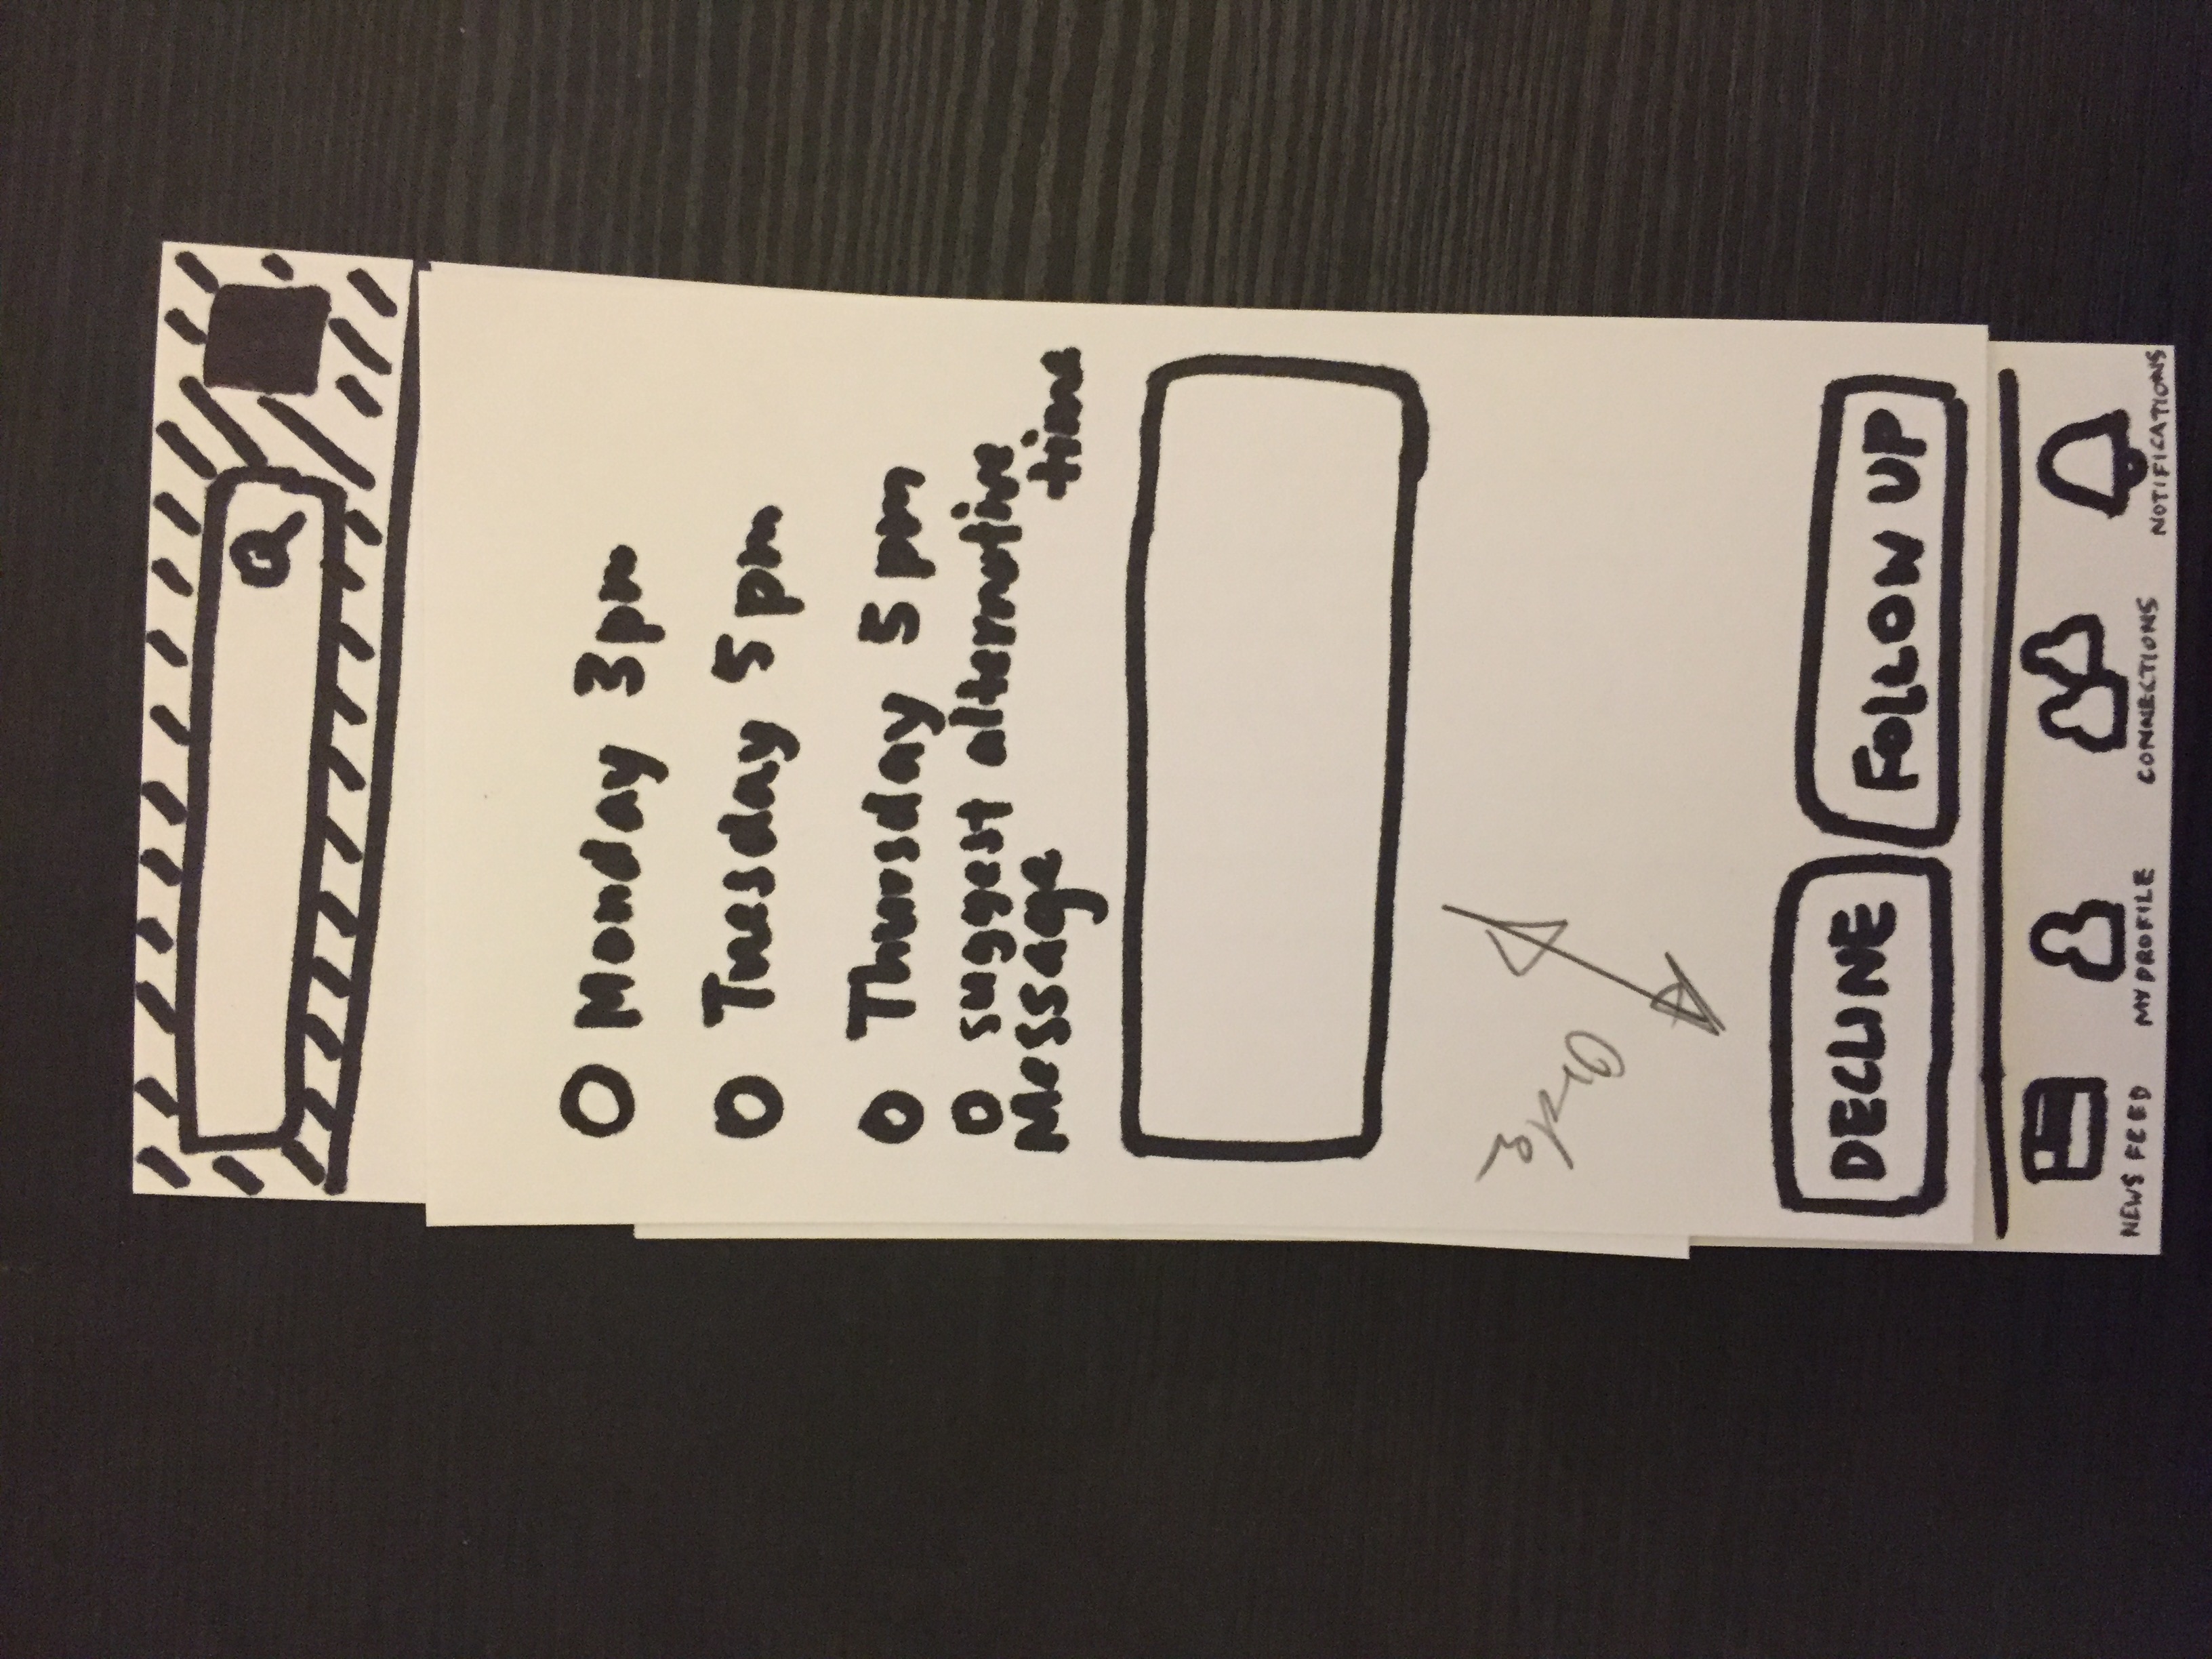 Monday 3pm
Tuesday 5pm
Thursday 5pm
suggest alternative
time
Message
DECLINE
FOLLOW UP
NEWS FEED
MY PROFILE
CONNECTIONS
NOTIFICATIONS